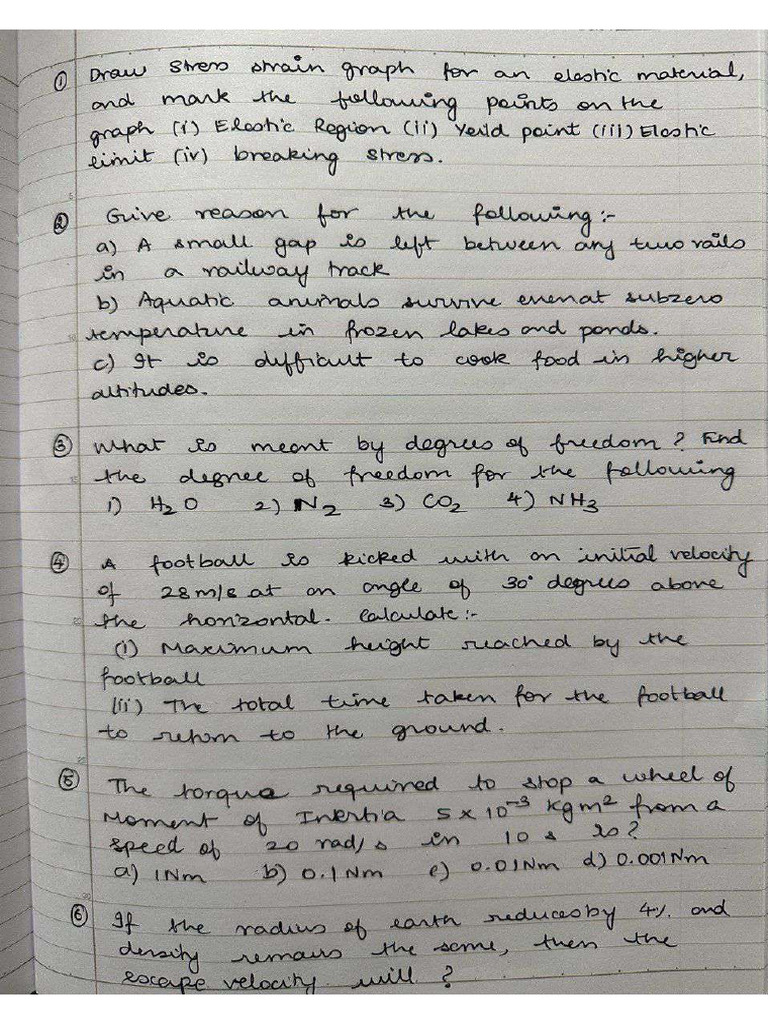 ① Draw stress strain graph for an elastic material,
and mark the following points on the
graph (i) Elastic Region (ii) Yeild point (iii) Elastic
limit (iv) breaking stress.
② Give reason for the following :-
a) A small gap is left between any two rails
in a railway track
b) Aquatic animals survive even at subzero
temperature in frozen lakes and ponds.
c) It is difficult to cook food in higher
altitudes.
③ What is meant by degrees of freedom? Find
the degree of freedom for the following
1) H2O 2) N2 3) CO2 4) NH3
④ A football is kicked with an initial velocity
of 28 m/s at an angle of 30° degrees above
the horizontal. Calculate :-
(i) Maximum height reached by the
football
(ii) The total time taken for the football
to return to the ground.
⑤ The torque required to stop a wheel of
Moment of Inertia 5 × 10⁻³ kg m² from a
speed of 20 rad/s in 10 s is?
a) 1Nm b) 0.1 Nm c) 0.01Nm d) 0.001Nm
⑥ If the radius of earth reduces by 4% and
density remains the same, then the
escape velocity will ?